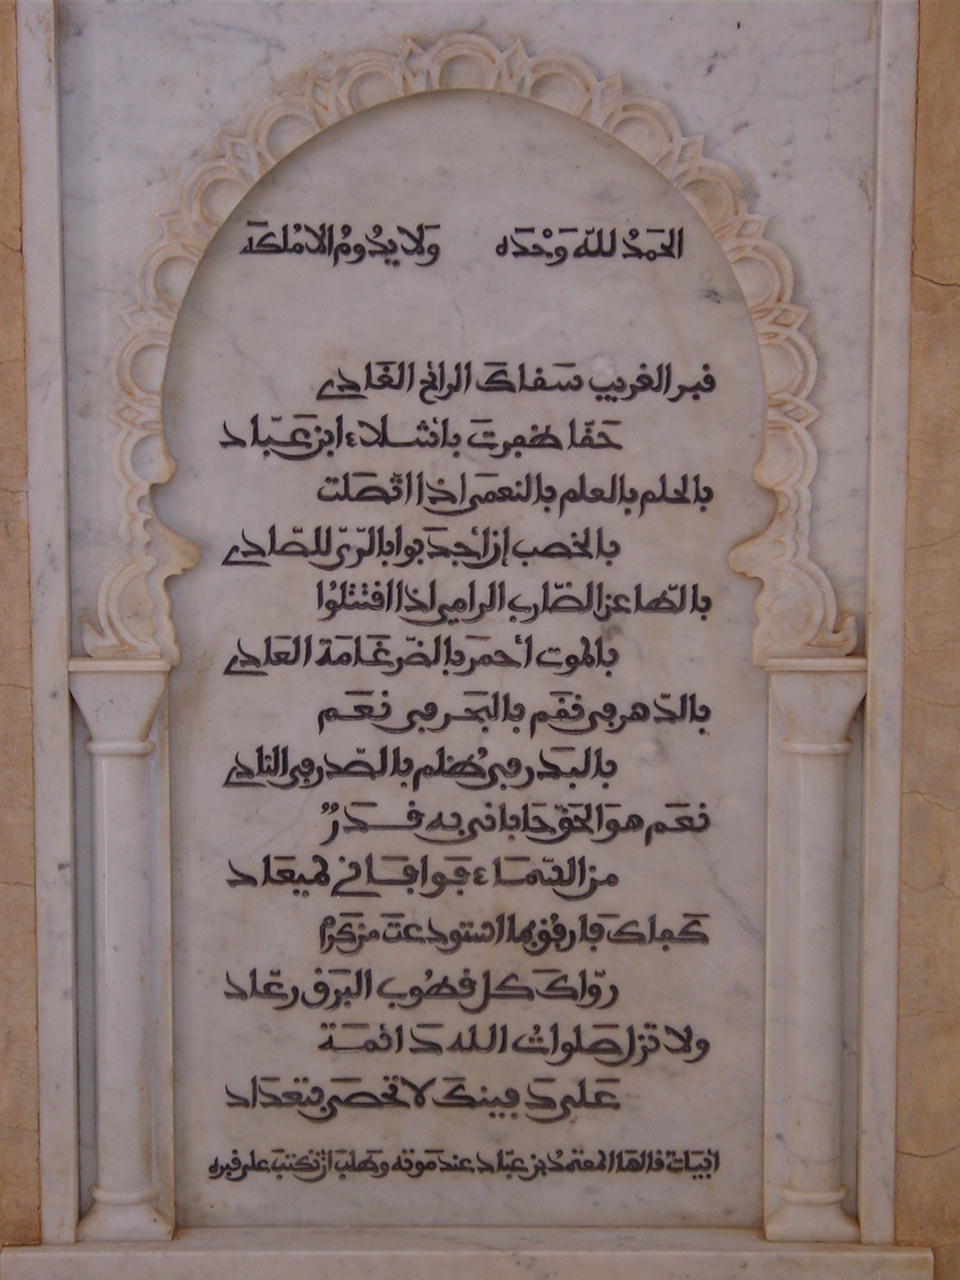 الحَمْدُ للهّ وَحْدَه وَلا يدُومُ الا مُلكه
قبر الغريب سَقاكَ الرائح الغَادي
حَقّا ظفرتَ بأشلاء ابن عَبّاد
بالحلم بالعلم بالنعمى اذا اتّصَلت
بالخصب إن أجدَبوا بالرّيّ للصّادي
بالطّاعن الضّارب الرامي اذا اقتتلُوا
بالموت أحمرَ بالضّرغَامَة العَادي
بالدّهر في نقَم بالبَحر في نعَم
بالبَدر في ظُلم بالصّدر في النادي
نعَم هوَ الحَقّ حَاباني به قَدَرٌ
من السّمَاء فَوافَاني لميعَاد
كَفاك فارفُق بما استودعتَ من كَرَم
روّاكَ كل قطُوب البَرق رعّاد
ولا تزل صَلواتُ الله دَائمَة
عَلى دَفينكَ لا تحصَى بتعدَاد
أبيات قالهَا المعتمدُ بن عبّاد عند مَوته وطَلبَ أن تكتبَ على قبره